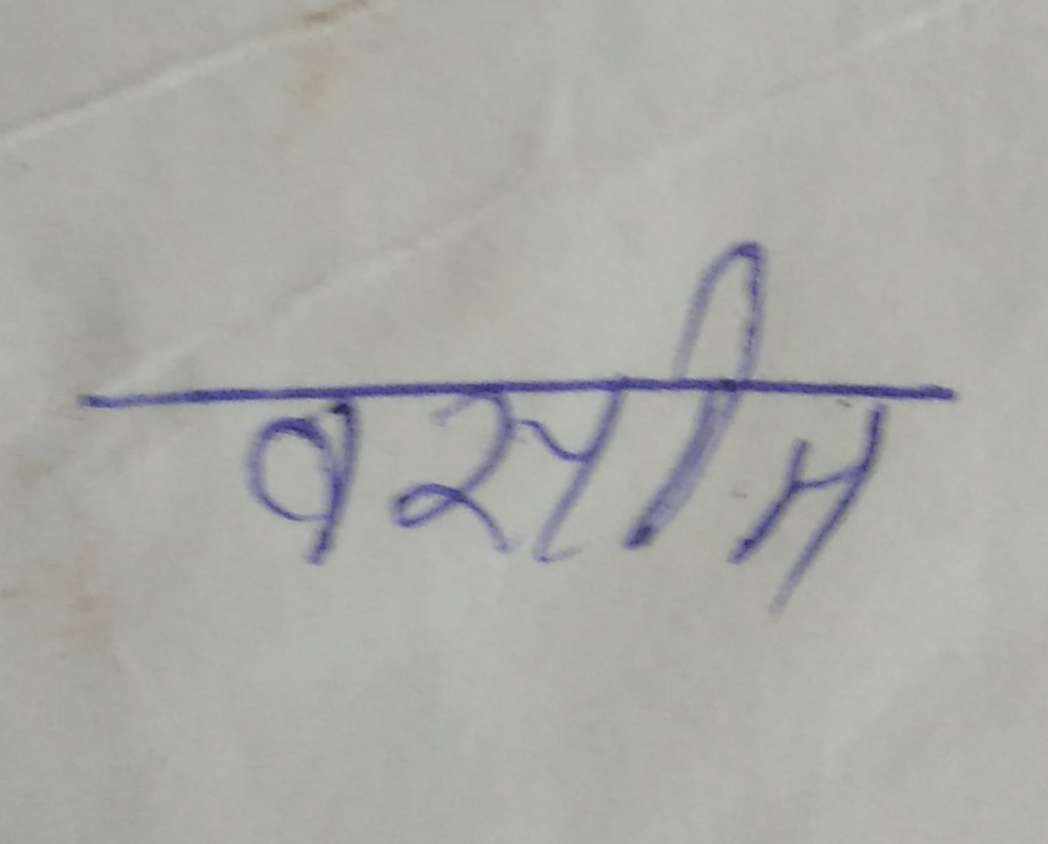 वसीम